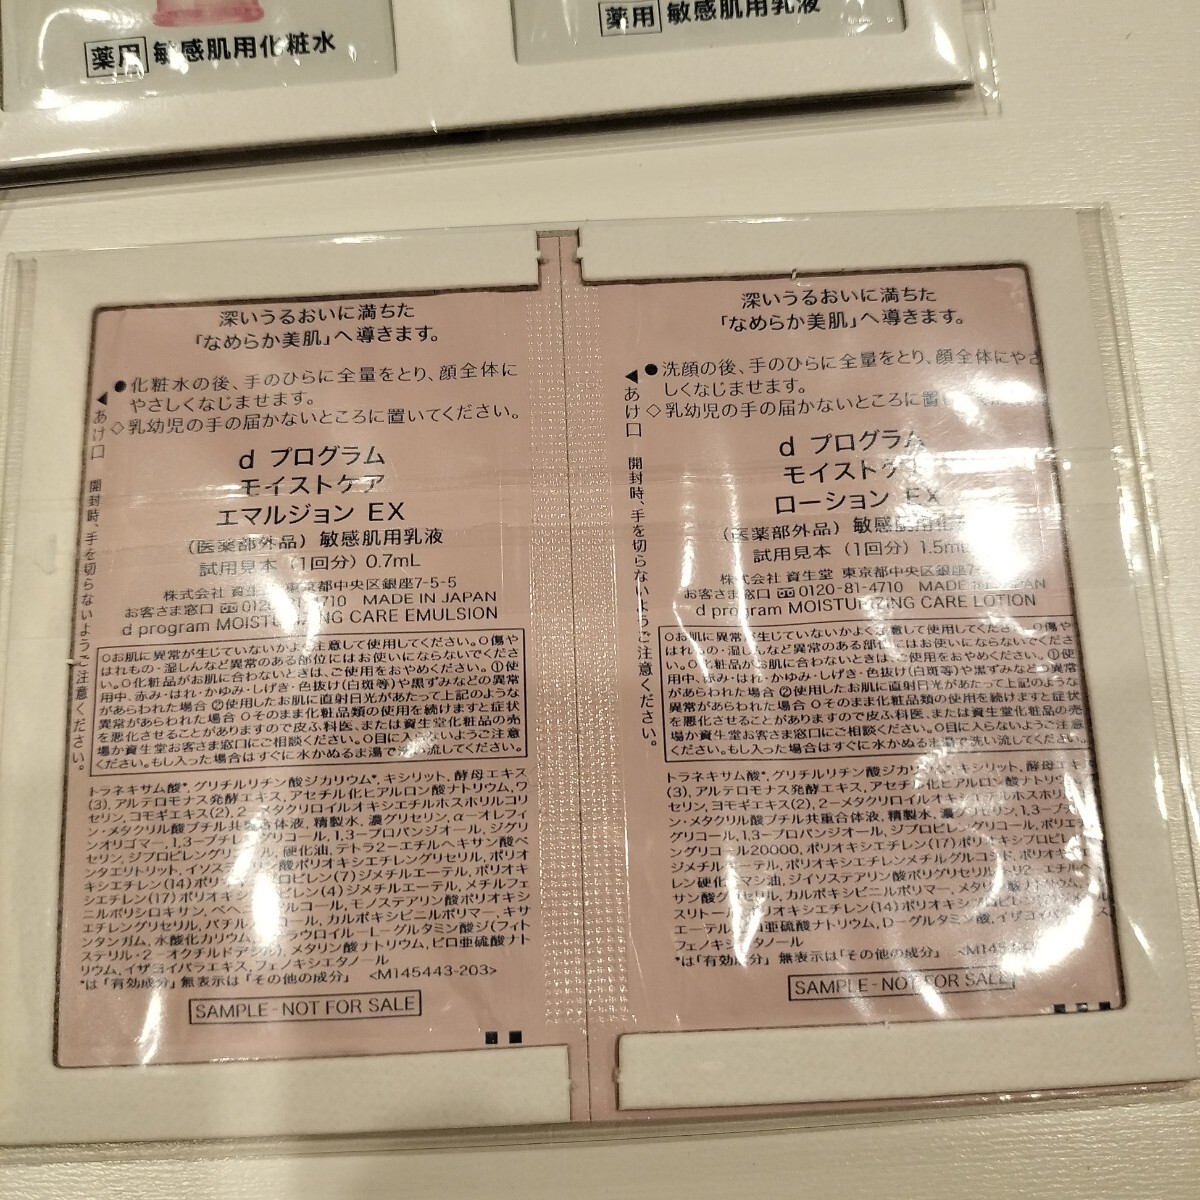 薬用 敏感肌用化粧水
薬用 敏感肌用乳液
深いうるおいに満ちた
「なめらか美肌」へ導きます。
●化粧水の後、手のひらに全量をとり、顔全体に
やさしくなじませます。
◇乳幼児の手の届かないところに置いてください。
◀あけ口 開封時、手を切らないようご注意ください。
d プログラム
モイストケア
エマルジョン EX
(医薬部外品) 敏感肌用乳液
試用見本 (1回分) 0.7mL
株式会社 資生堂 東京都中央区銀座7-5-5
お客さま窓口 0120-81-4710 MADE IN JAPAN
d program MOISTURIZING CARE EMULSION
○お肌に異常が生じていないかよく注意して使用してください。○傷や
はれもの・湿しんなど異常のある部位にはお使いにならないでくださ
い。○化粧品がお肌に合わないときは、ご使用をおやめください。①使
用中、赤み・はれ・かゆみ・しげき・色抜け(白斑等)や黒ずみなどの異常
があらわれた場合 ②使用したお肌に直射日光があたって上記のような
異常があらわれた場合 ○そのまま化粧品類の使用を続けますと症状
を悪化させることがありますので皮ふ科医、または資生堂化粧品の売
場か資生堂お客さま窓口にご相談ください。○目に入らないようご注意
ください。もし入った場合はすぐに水かぬるま湯で洗い流してください。
トラネキサム酸*, グリチルリチン酸ジカリウム*, キシリット, 酵母エキス
(3), アルテロモナス発酵エキス, アセチル化ヒアルロン酸ナトリウム, ワ
セリン, ヨモギエキス(2), 2-メタクリロイルオキシエチルホスホリルコリ
ン・メタクリル酸ブチル共重合体液, 精製水, 濃グリセリン, α-オレフィ
ンオリゴマー, 1,3-ブチレングリコール, 1,3-プロパンジオール, ジグリ
セリン, ジプロピレングリコール, 硬化油, テトラ2-エチルヘキサン酸ペ
ンタエリトリット, イソステアリン酸ポリオキシエチレングリセリル, ポリオ
キシエチレン(14)ポリオキシプロピレン(7)ジメチルエーテル, ポリオキシ
エチレン(17)ポリオキシプロピレン(4)ジメチルエーテル, メチルフェ
ニルポリシロキサン, ベヘニルアルコール, モノステアリン酸ポリオキシ
エチレングリセリル, バチルアルコール, カルボキシビニルポリマー, キサ
ンタンガム, 水酸化カリウム, ラウロイル-L-グルタミン酸ジ(フィト
ステリル・2-オクチルドデシル), メタリン酸ナトリウム, ピロ亜硫酸ナト
リウム, イザヨイバラエキス, フェノキシエタノール
*は「有効成分」無表示は「その他の成分」 <M145443-203>
SAMPLE-NOT FOR SALE
深いうるおいに満ちた
「なめらか美肌」へ導きます。
●洗顔の後、手のひらに全量をとり、顔全体にやさ
しくなじませます。
◇乳幼児の手の届かないところに置
◀あけ口 開封時、手を切らないようご注意ください。
d プログラム
モイストケア
ローション EX
(医薬部外品) 敏感肌用化
試用見本 (1回分) 1.5mL
株式会社 資生堂 東京都中央区銀座7-
お客さま窓口 0120-81-4710 MADE IN JAPAN
d program MOISTURIZING CARE LOTION
○お肌に異常が生じていないかよく注意して使用してください。○傷や
はれもの・湿しんなど異常のある部位にはお使いにならないでくださ
い。○化粧品がお肌に合わないときは、ご使用をおやめください。①使
用中、赤み・はれ・かゆみ・しげき・色抜け(白斑等)や黒ずみなどの異常
があらわれた場合 ②使用したお肌に直射日光があたって上記のような
異常があらわれた場合 ○そのまま化粧品類の使用を続けますと症状
を悪化させることがありますので皮ふ科医、または資生堂化粧品の売
場か資生堂お客さま窓口にご相談ください。○目に入らないようご注意
ください。もし入った場合はすぐに水かぬるま湯で洗い流してください。
トラネキサム酸*, グリチルリチン酸ジカリウム*, キシリット, 酵母エキス
(3), アルテロモナス発酵エキス, アセチル化ヒアルロン酸ナトリウム,
セリン, ヨモギエキス(2), 2-メタクリロイルオキシエチルホスホリル
ン・メタクリル酸ブチル共重合体液, 精製水, 濃グリセリン, 1,3-ブチ
グリコール, 1,3-プロパンジオール, ジプロピレングリコール, ポリエチ
ングリコール20000, ポリオキシエチレン(17)ポリオキシプロピレン
ジメチルエーテル, ポリオキシエチレンメチルグルコシド, ポリオキシ
レン硬化ヒマシ油, ジイソステアリン酸ポリグリセリル, トリ2-エチルヘ
サン酸グリセリル, カルボキシビニルポリマー, メタリン酸ナトリウム,
エーテル, ピロ亜硫酸ナトリウム, D-グルタミン酸, イザヨイバラ
フェノキシエタノール
*は「有効成分」無表示は「その他の成分」 <M145
SAMPLE-NOT FOR SALE